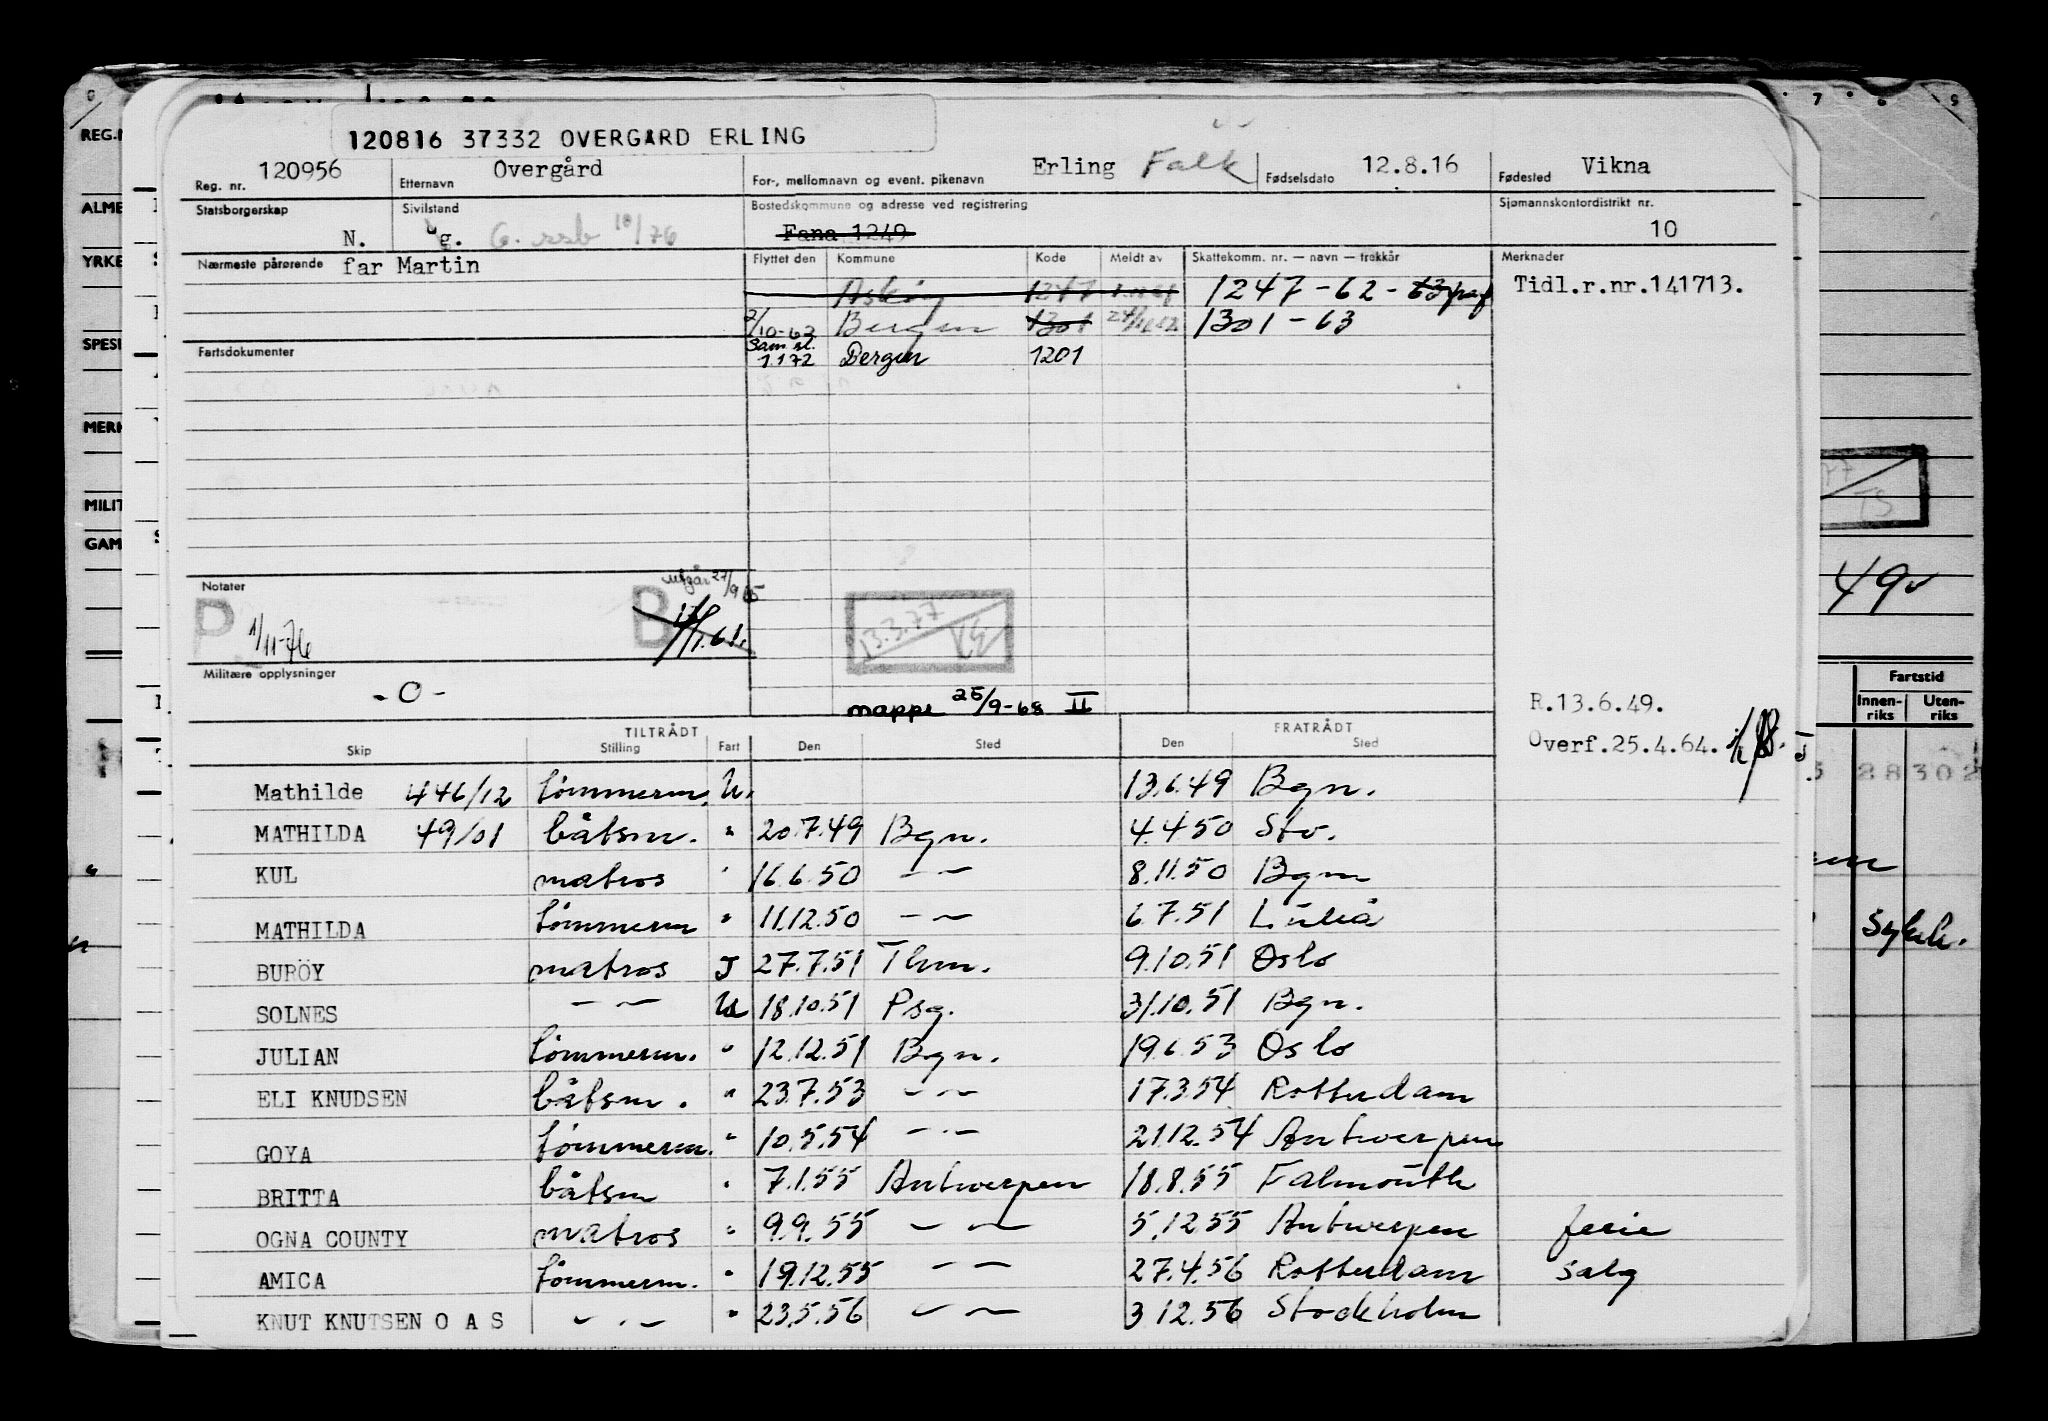 120816 37332 OVERGARD ERLING
Reg. nr. 120956 Etternavn Overgård For-, mellomnavn og event. pikenavn Erling Falk Fødselsdato 12.8.16 Fødested Vikna
Statsborgerskap N. Sivilstand ug. G. ssb 10/76 Bostedskommune og adresse ved registrering Fana 1249 Sjømannskontordistrikt nr. 10
Nærmeste pårørende far Martin Flyttet den Kommune Kode Meldt av Skattekomm. nr. — navn — trekkår Merknader
Askøy 1247 1247-62- Tidl.r.nr.141713.
2/10-62 Bergen 1301 1301-63
Sam.sl.
1.1.72 Bergen 1201
Fartsdokumenter
Notater
utgår 27/9 65
P 1/11-76 B
13.3.77
Militære opplysninger
-O-
mappe 25/9-68 II
R.13.6.49.
Overf.25.4.64.
TILTRÅDT FRATRÅDT
Skip Stilling Fart Den Sted Den Sted
Mathilde 446/12 tømmerm. U. 13.6.49 Bgn.
MATHILDA 49/01 båtsm. " 20.7.49 Bgn. 4.4.50 Stv.
KUL matros " 16.6.50 —~ 8.11.50 Bgn
MATHILDA tømmerm " 11.12.50 —~ 6.7.51 Luleå
BURÖY matros J 27.7.51 Thm. 9.10.51 Oslo
SOLNES —~ U 18.10.51 Psg. 31.10.51 Bgn.
JULIAN tømmerm. " 12.12.51 Bgn. 19.6.53 Oslo
ELI KNUDSEN båtsm. " 23.7.53 —~ 17.3.54 Rotterdam
GOYA tømmerm. " 10.5.54 —~ 21.12.54 Antwerpen
BRITTA båtsm " 7.1.55 Antwerpen 18.8.55 Falmouth
OGNA COUNTY matros " 9.9.55 —~ 5.12.55 Antwerpen ferie
AMICA tømmerm. " 19.12.55 —~ 27.4.56 Rotterdam salg
KNUT KNUTSEN O A S —~ " 23.5.56 —~ 3 12.56 Stockholm
REG.N
ALME
YRKE
SPESI
MERK
MILIT
GAM
49
Fartstid
Innen-riks Uten-riks
28302